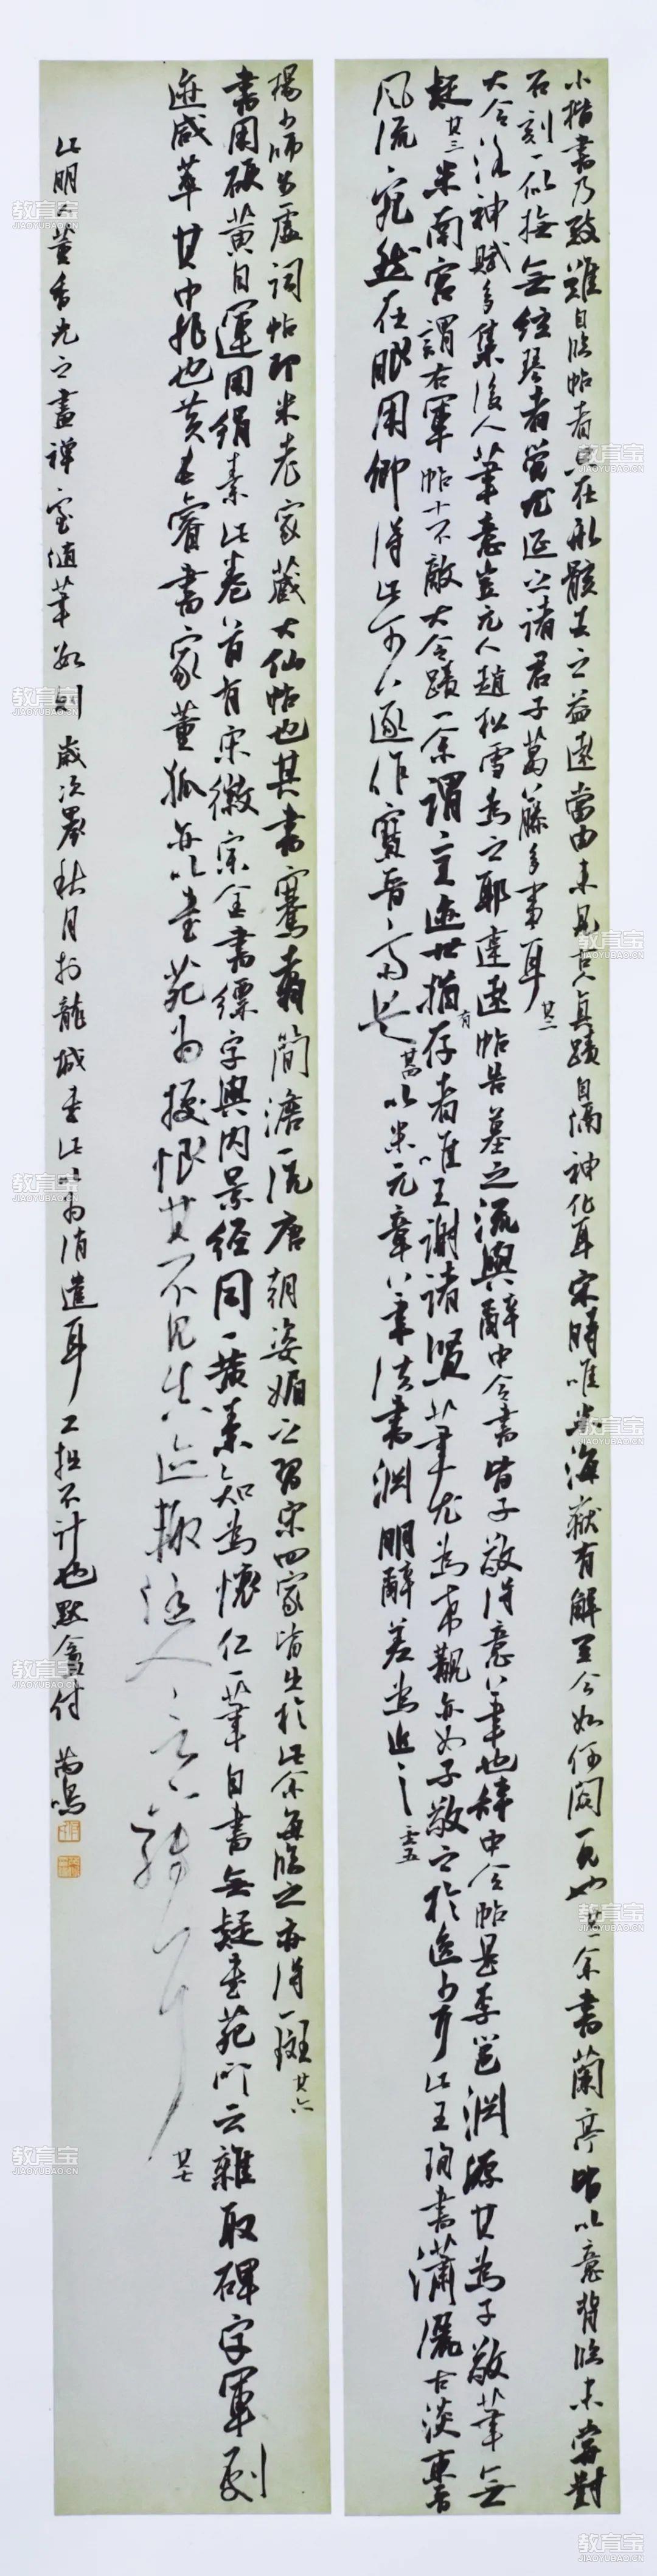 小楷书乃致难自临帖者只在形骸去之益远当由未见古人真蹟自隔神化耳宋時唯米海嶽有解至今如何閣一死也廿一余書蘭亭皆以意背臨未嘗對
石刻一似撫無絃琴者覺尤延之諸君子葛藤多事耳廿二
大令洛神賦多集後人筆意豈元人趙松雪為之耶達遠帖告墓之流與辭中令書皆子敬得意筆也辭中令帖是李邕淵源其為子敬筆無
疑廿三米南宮謂右軍帖十不敵大令蹟一余謂二王迹世猶有存者唯王謝諸賢筆尤為希覯亦如子敬之於逸少耳此王珣書瀟灑古淡東晉
風流宛然在眼用卿得此可遂作寶晉齋矣廿四以米元章筆法書淵明辭差為近之廿五
楊少師步虛詞帖即米老家藏大仙帖也其書騫翥簡澹一洗唐朝姿媚之習宋四家皆出於此余每臨之亦得一斑廿六
書用硬黃自運用絹素此卷首有宋徽宗金書縹字與內景經同一黃素知為懷仁一筆自書無疑書苑所云雜取碑字軍劇
跡咸萃其中非也黃長睿書家董狐亦以書苑為據恨其不見真跡輒隨人言下轉耳廿七
此明人董香光之畫禪室隨筆數則歲次秋月於龍城書此以為消遣耳工拙不計也默盦付
教育宝
JIAOYUBAO.CN